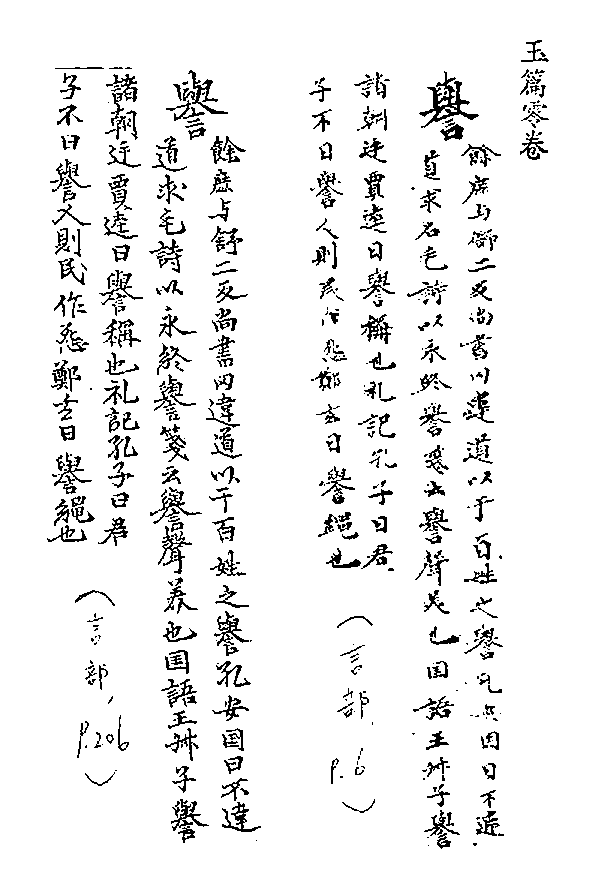 玉篇零卷
譽
餘庶与御二反尚書川違道以于百姓之譽孔安国曰不違
道求名毛詩以永終譽箋云譽聲美也国語王舛子譽
諸朝迋賈逵曰譽稱也礼記孔子曰君
子不曰譽人則民作怨鄭玄曰譽繩也
(言部, p.6)
譽
餘庶与舒二反尚書罔違道以干百姓之譽孔安国曰不違
道求毛詩以永終譽箋云譽聲美也国語王舛子譽
諸朝迋賈逵曰譽稱也礼記孔子曰君
子不曰譽人則民作怨鄭玄曰譽繩也
(言部, p.206)